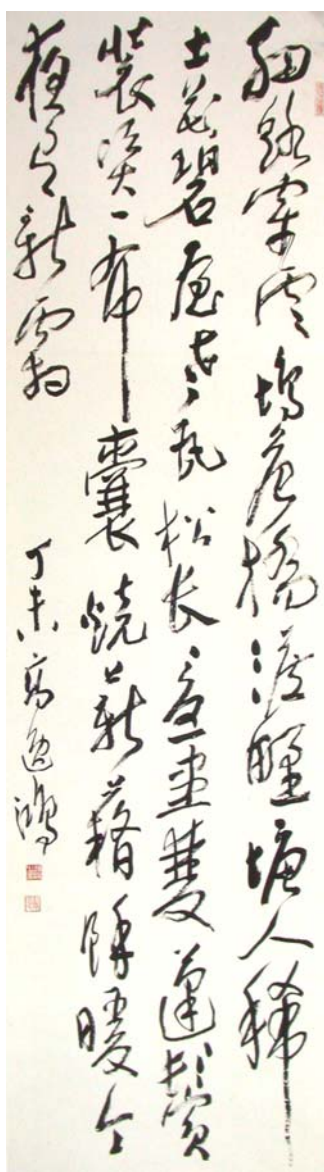 細路穿雲塢危橋渡野塘人稀
土花碧屋老瓦松長意盡雙蓬鬢
裝資一布囊燒薪藉餘暖今
夜有新霜
丁未高逸鴻